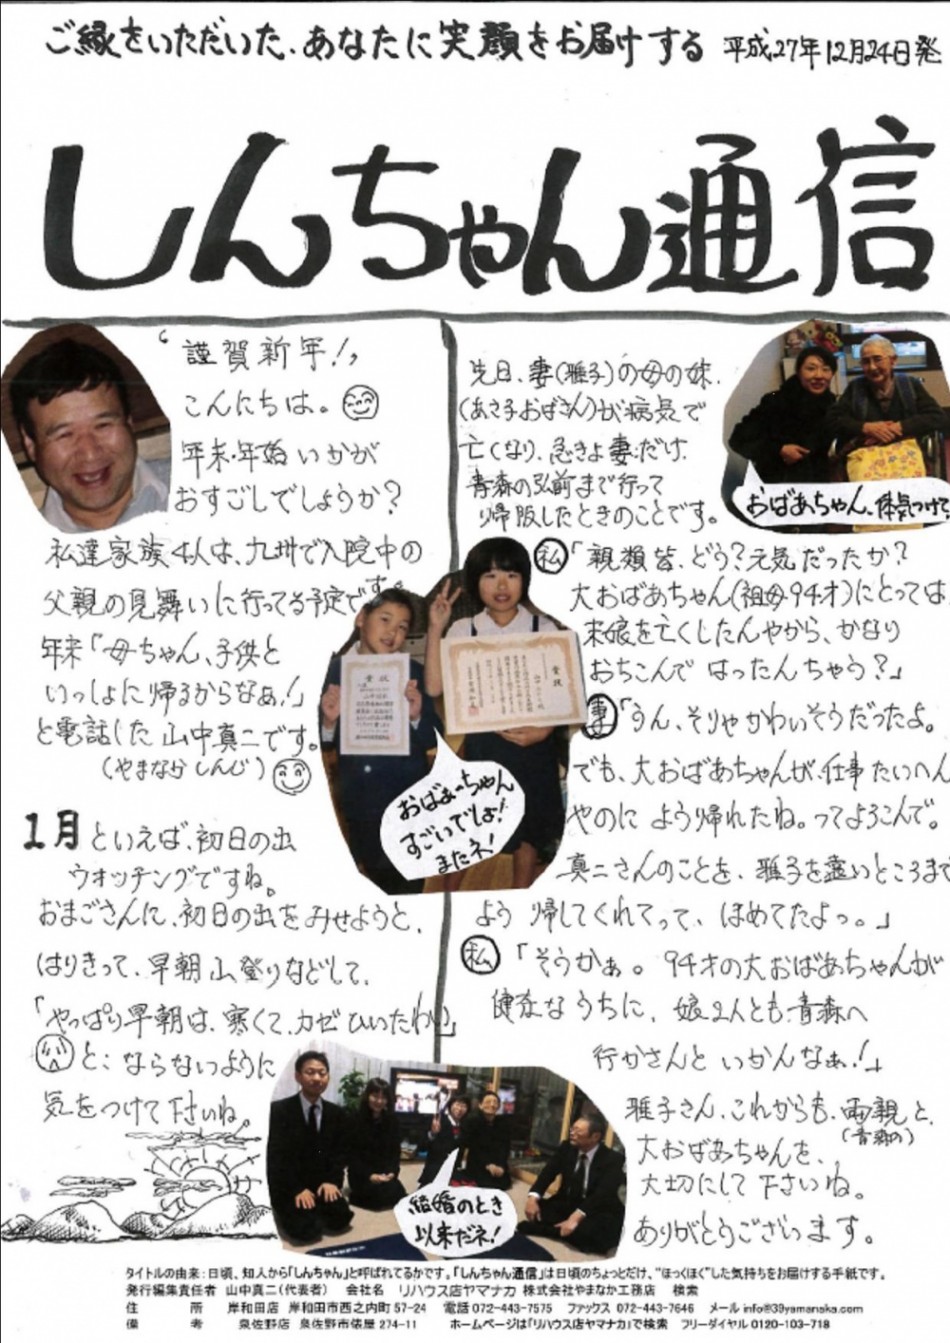 ご縁をいただいた、あなたに笑顔をお届けする 平成27年12月24日発
しんちゃん通信
"謹賀新年!"
こんにちは。
年末・年始いかがが
おすごしでしょうか?
私達家族4人は、九州で入院中の
父親の見舞いに行ってる予定です。
年末「母ちゃん、子供と
いっしょに帰るからなぁ!」
と電話した山中真二です。
(やまなか しんじ)
1月といえば、初日の出
ウオッチングですね。
おまごさんに、初日の出をみせようと、
はりきって、早朝山登りなどして、
「やっぱり早朝は、寒くて、カゼひいたわい」
と、ならないように
気をつけて下さいね。
先日、妻(雅子)の母の妹、
(あさ子おばさん)が病気で
亡くなり、急きょ妻だけ、
青森の弘前まで行って
帰阪したときのことです。
おばあちゃん、体気つけて
私「親類皆、どう?元気だったか?
大おばあちゃん(祖母94才)にとっては
末娘を亡くしたんやから、かなり
おちこんではったんちゃう?」
妻「うん、そりゃかわいそうだったよ。
でも、大おばあちゃんが、仕事たいへん
やのに よう帰れたね。ってよろこんで。
真二さんのことを、雅子を遠いところまで
よう 帰してくれてって、ほめてたよっ。」
私「そうかぁ。94才の大おばあちゃんが
健在なうちに、娘2人とも青森へ
行かさんと いかんなぁ!」
雅子さん、これからも、両親と、
(青森の)
大おばあちゃんを、
大切にして下さいね。
ありがとうございます。
賞状
賞状
おばぁーちゃん
すごいでしょ!
またネ!
結婚のとき
以来だネ!
タイトルの由来:日頃、知人から「しんちゃん」と呼ばれてるかです。「しんちゃん通信」は日頃のちょっとだけ、"ほっくほく"した気持ちをお届けする手紙です。
発行編集責任者 山中真二(代表者) 会社名 リハウス店ヤマナカ 株式会社やまなか工務店 検索
住 所 岸和田店 岸和田市西之内町57-24 電話072-443-7575 ファックス 072-443-7646 メール info@39yamanaka.com
備 考 泉佐野店 泉佐野市俵屋274-11 ホームページは「リハウス店ヤマナカ」で検索 フリーダイヤル0120-103-718